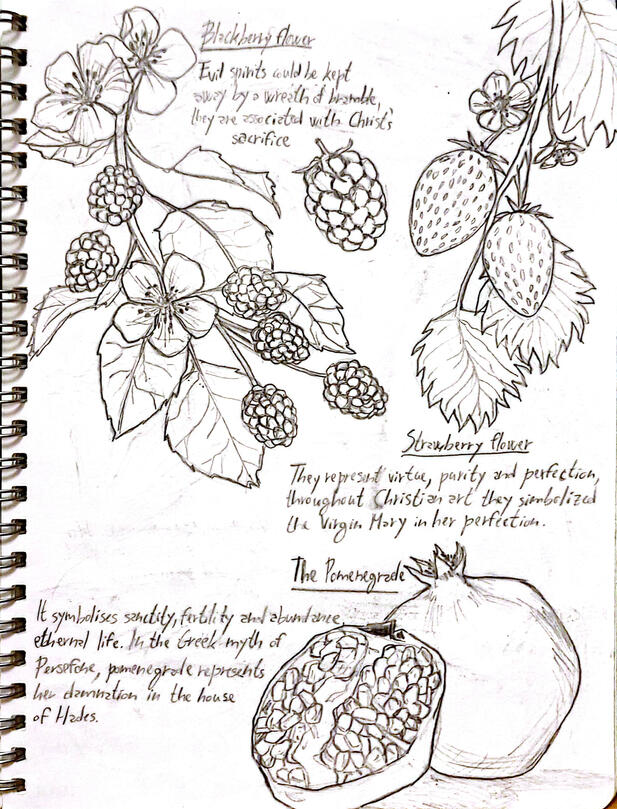 Blackberry flower
Evil spirits could be kept
away by a wreath of bramble,
they are associated with Christ's
sacrifice
Strawberry flower
They represent virtue, purity and perfection,
throughout Christian art they simbolized
the Virgin Mary in her perfection.
The Pomenegrade
It symbolises sanctity, fertility and abundance
ethernal life. In the Greek myth of
Persefone, pomenegrade represents
her damnation in the house
of Hades.